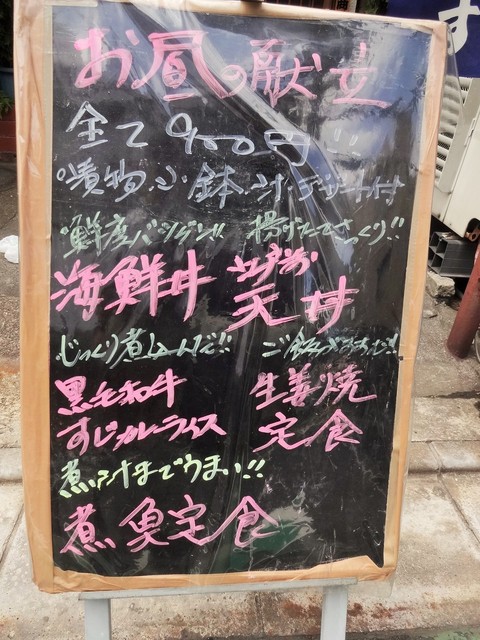 お昼の献立
全て900円
漬物・小鉢・汁・デザート付
鮮度バツグン!!
海鮮丼
揚げたてさっくり!!
天丼
じっくり煮込んだ!!
黒毛和牛
すじカレーライス
ご飯がすすむ!!
生姜焼
定食
煮汁までうまい!!
煮魚定食
す